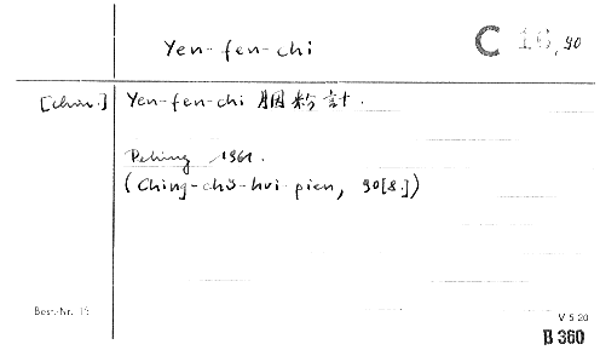 Yen-fen-chi
C 16, 90
[chin.] Yen-fen-chi 胭粉計.
Peking 1961.
(Ching-chü-hui-pien, 90[8.])
Best.-Nr. 15
V 5 20
B 360